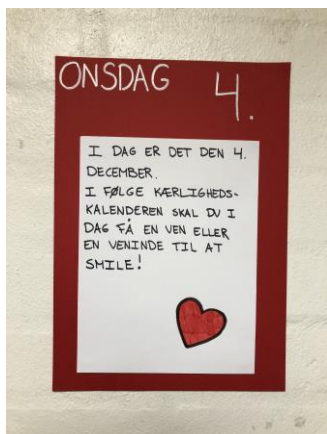 ONSDAG 4.
I DAG ER DET DEN 4.
DECEMBER.
I FØLGE KÆRLIGHEDS-
KALENDEREN SKAL DU I
DAG FÅ EN VEN ELLER
EN VENINDE TIL AT
SMILE!